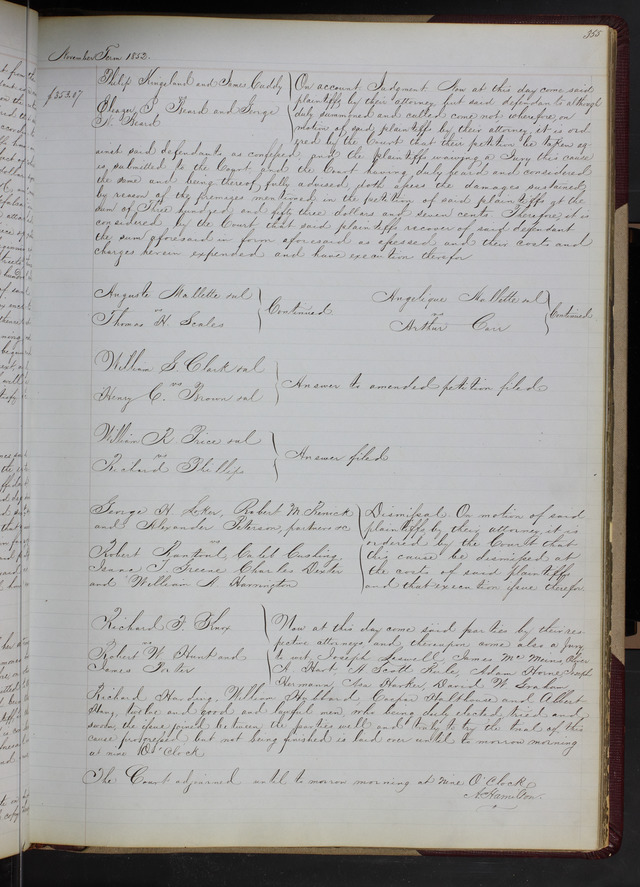 355
November Term 1852.
Philip Kingsland and James Cuddy
vs
Eleazer S Beard and George
W. Beard
$353.07
On account Judgment Now at this day come said
plaintiffs by their attorney but said defendants although
duly summoned and called come not wherefore on
motion of said plaintiffs by their attorney it is ord
ered by the Court that their petition be taken ag
ainst said defendants as confessed, and the plaintiffs waiving a Jury this cause
is submitted to the Court and the Court having duly heard and considered
the same and being thereof fully advised doth assess the damages sustained
by reason of the premises mentioned in the petition of said plaintiffs at the
sum of Three hundred and fifty three dollars and seven cents Therefore it is
considered by the Court that said plaintiffs recover of said defendants
the sum aforesaid in form aforesaid as assessed and their costs and
charges herein expended and have execution therefor
Auguste Mallette et al
vs
Thomas H. Scales
Continued
Angelique Mallette et al
vs
Arthur Carr
Continued
William S. Clark et al
vs
Henry C. Brown et al
Answer to amended petition filed
William R. Price et al
vs
Richard Phillips
Answer filed
George H Loker, Robert M Renick
and Alexander Peterson, partners &c
vs
Robert Rantoul, Calel Cushing
Isaac T. Greene Charles Dexter
and William A Harrington
Dismissal On motion of said
plaintiffs by their attorney it is
ordered by the Court that
this cause be dismissed at
the costs of said plaintiffs
and that execution issue therefor
Richard F. Knox
vs
Robert W Hunt and
James Porter
Now at this day come said parties by their res
pective attorneys and thereupon come also a Jury
to wit, Joseph James Mc Oliver
A Hart, Scott Adam Horne Joseph
Hermann, Asa Harker, David W. Graham
Harding, William Hibbard, and Albert
twelve good and lawful men, who being duly elected tried and
sworn the issue joined between the parties well and truly to try the trial of this
cause progressed but not being finished is laid over until to morrow morning
at nine O'Clock
The Court adjourned until to morrow morning at nine O'Clock
A Hamilton.